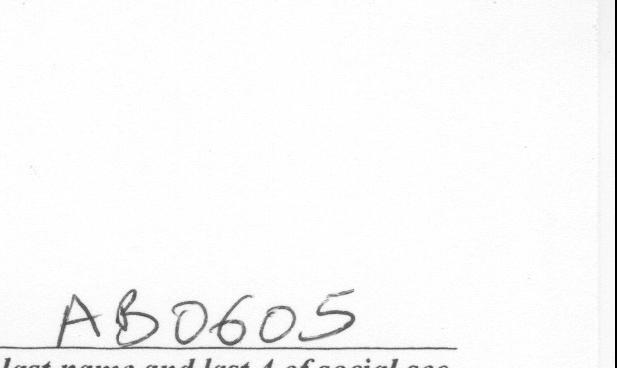 AB0605
last name and last 4 of social sec